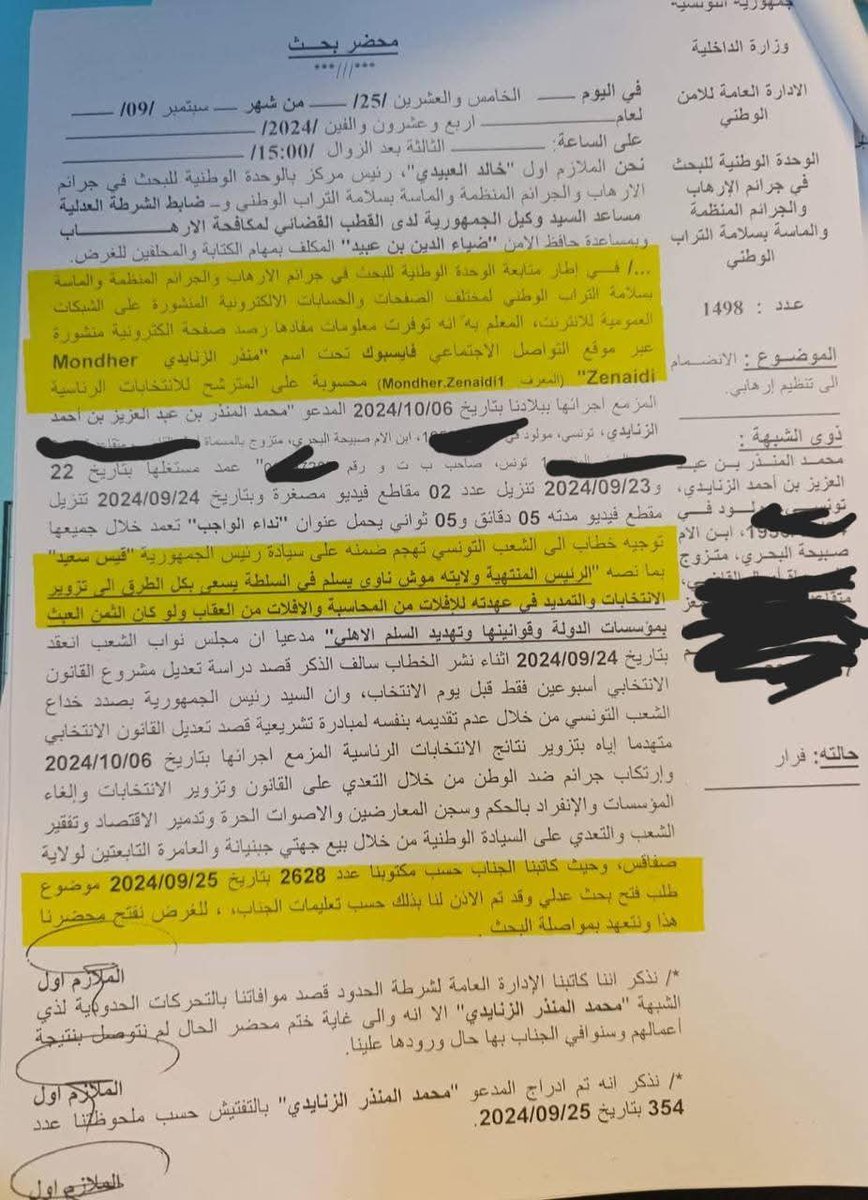 جمهورية التونسية
وزارة الداخلية
الادارة العامة للامن
الوطني
الوحدة الوطنية للبحث
في جرائم الإرهاب
والجرائم المنظمة
والماسة بسلامة التراب
الوطني
عدد : 1498
الموضوع : الانضمام
الى تنظيم إرهابي.
ذوي الشبهة :
محمد المنذر بن عبد
العزيز بن أحمد الزنايدي،
تونسي، مولود في
ابن الام
صبيحة البحري، متزوج
حالته: فرار
محضر بحث
***///***
في اليوم الخامس والعشرين /25/ من شهر سبتمبر /09/
لعام اربع وعشرون والفين /2024/
على الساعة: الثالثة بعد الزوال /15:00/
نحن الملازم اول "خالد العبيدي"، رئيس مركز بالوحدة الوطنية للبحث في جرائم
الارهاب والجرائم المنظمة والماسة بسلامة التراب الوطني و ضابط الشرطة العدلية
مساعد السيد وكيل الجمهورية لدى القطب القضائي لمكافحة الارهاب
وبمساعدة حافظ الامن "ضياء الدين بن عبيد" المكلف بمهام الكتابة والمحلفين للغرض.
.../ في إطار متابعة الوحدة الوطنية للبحث في جرائم الارهاب والجرائم المنظمة والماسة
بسلامة التراب الوطني لمختلف الصفحات والحسابات الالكترونية المنشورة على الشبكات
العمومية للانترنت، المعلم به انه توفرت معلومات مفادها رصد صفحة الكترونية منشورة
عبر موقع التواصل الاجتماعي فايسبوك تحت اسم "منذر الزنايدي Mondher
Zenaidi" (المعرف Mondher.Zenaidi1) محسوبة على المترشح للانتخابات الرئاسية
المزمع اجرائها ببلادنا بتاريخ 2024/10/06 المدعو "محمد المنذر بن عبد العزيز بن أحمد
الزنايدي، تونسي، مولود في ابن الام صبيحة البحري، متزوج بالمسماة
تونس، صاحب ب ت و رقم " عمد مستغلها بتاريخ 22
و2024/09/23 تنزيل عدد 02 مقاطع فيديو مصغرة وبتاريخ 2024/09/24 تنزيل
مقطع فيديو مدته 05 دقائق و05 ثواني يحمل عنوان "نداء الواجب" تعمد خلال جميعها
توجيه خطاب الى الشعب التونسي تهجم ضمنه على سيادة رئيس الجمهورية "قيس سعيد"
بما نصه "الرئيس المنتهية ولايته موش ناوي يسلم في السلطة يسعى بكل الطرق الى تزوير
الانتخابات والتمديد في عهدته للإفلات من المحاسبة والافلات من العقاب ولو كان الثمن العبث
بمؤسسات الدولة وقوانينها وتهديد السلم الاهلي" مدعيا ان مجلس نواب الشعب انعقد
بتاريخ 2024/09/24 اثناء نشر الخطاب سالف الذكر قصد دراسة تعديل مشروع القانون
الانتخابي أسبوعين فقط قبل يوم الانتخاب، وان السيد رئيس الجمهورية بصدد خداع
الشعب التونسي من خلال عدم تقديمه بنفسه لمبادرة تشريعية قصد تعديل القانون الانتخابي
متهدما إياه بتزوير نتائج الانتخابات الرئاسية المزمع اجرائها بتاريخ 2024/10/06
وإرتكاب جرائم ضد الوطن من خلال التعدي على القانون وتزوير الانتخابات وإلغاء
المؤسسات والإنفراد بالحكم وسجن المعارضين والاصوات الحرة وتدمير الاقتصاد وتفقير
الشعب والتعدي على السيادة الوطنية من خلال بيع جهتي جبنيانة والعامرة التابعتين لولاية
صفاقس، وحيث كاتبنا الجناب حسب مكتوبنا عدد 2628 بتاريخ 2024/09/25 موضوع
طلب فتح بحث عدلي وقد تم الاذن لنا بذلك حسب تعليمات الجناب، ، للغرض نفتح محضرنا
هذا ونتعهد بمواصلة البحث .
الملازم اول
*/ نذكر اننا كاتبنا الإدارة العامة لشرطة الحدود قصد موافاتنا بالتحركات الحدودية لذي
الشبهة "محمد المنذر الزنايدي" الا انه والى غاية ختم محضر الحال لم نتوصل بنتيجة
أعمالهم وسنوافي الجناب بها حال ورودها علينا.
الملازم اول
*/ نذكر انه تم ادراج المدعو "محمد المنذر الزنايدي" بالتفتيش حسب ملحوظتنا عدد
354 بتاريخ 2024/09/25.
الملازم اول